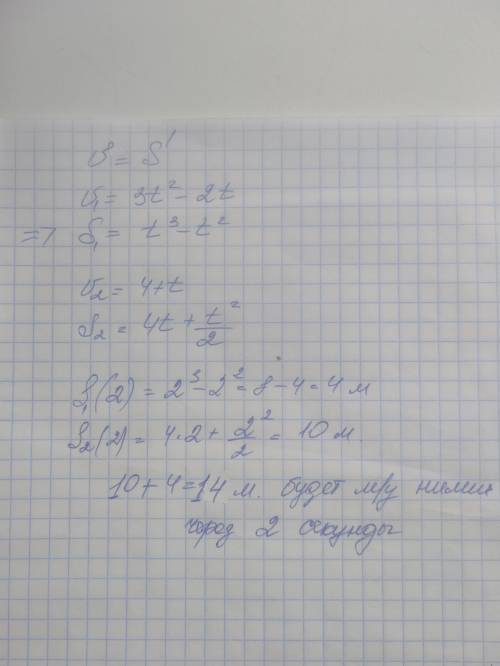 υ = S'
υ₁ = 3t² - 2t
=> S₁ = t³ - t²
υ₂ = 4+t
S₂ = 4t + t²/2
S₁(2) = 2³ - 2² = 8 - 4 = 4 м
S₂(2) = 4·2 + 2²/2 = 10 м.
10 + 4 = 14 м. будет м/у ними
через 2 секунды